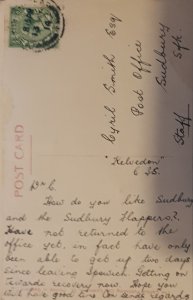 POST CARD
Cyril Smith Esq
Post Office
Sudbury
Sfk
Staff
"Kelvedon"
Dr C.
How do you like Sudbury
and the Sudbury Flappers?.
Have not returned to the
office yet, in fact have only
been able to get up two days
since leaving Ipswich. Getting on
towards recovery now. Hope you
will have good time